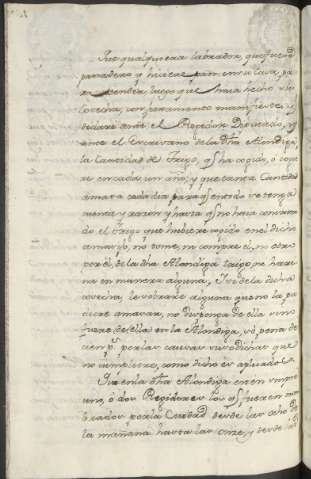 Que qualquiera labrador, que fuere
panadero y hiciere pan en su casa, pa
ra vender, luego que haia hecho su
cosecha, con juramento manifieste, y
declare ante el Regidor Diputado, y
ante el Escrivano de la dha Alondiga
la Cantidad de Trigo, qe ha cogido, o coge
re en cada un año; y que tanta Cantidad
amasa cada dia para qe en todo se tenga
cuenta y razon; y hasta qe no haia consumi
do el trigo que huviere cogido en el dicho
amasijo, no tome, ni compre el, ni otro
por el, de la dha Alondiga trigo, ni harina
en manera alguna, Y si de la dicha
cosecha, le sobrare alguna que no la pu
diere amasar, no disponga de ella sino
fuere de ella en la Alondiga, so pena de
cien ps. por las causas susodichas que
no cumpliere, como dicho es aplicado
Que en la dha Alondiga esten siempre
uno, o dos Regidores los qe fueren nom
brados por la Ciudad desde las ocho de
la mañana hasta las onze, y desde las